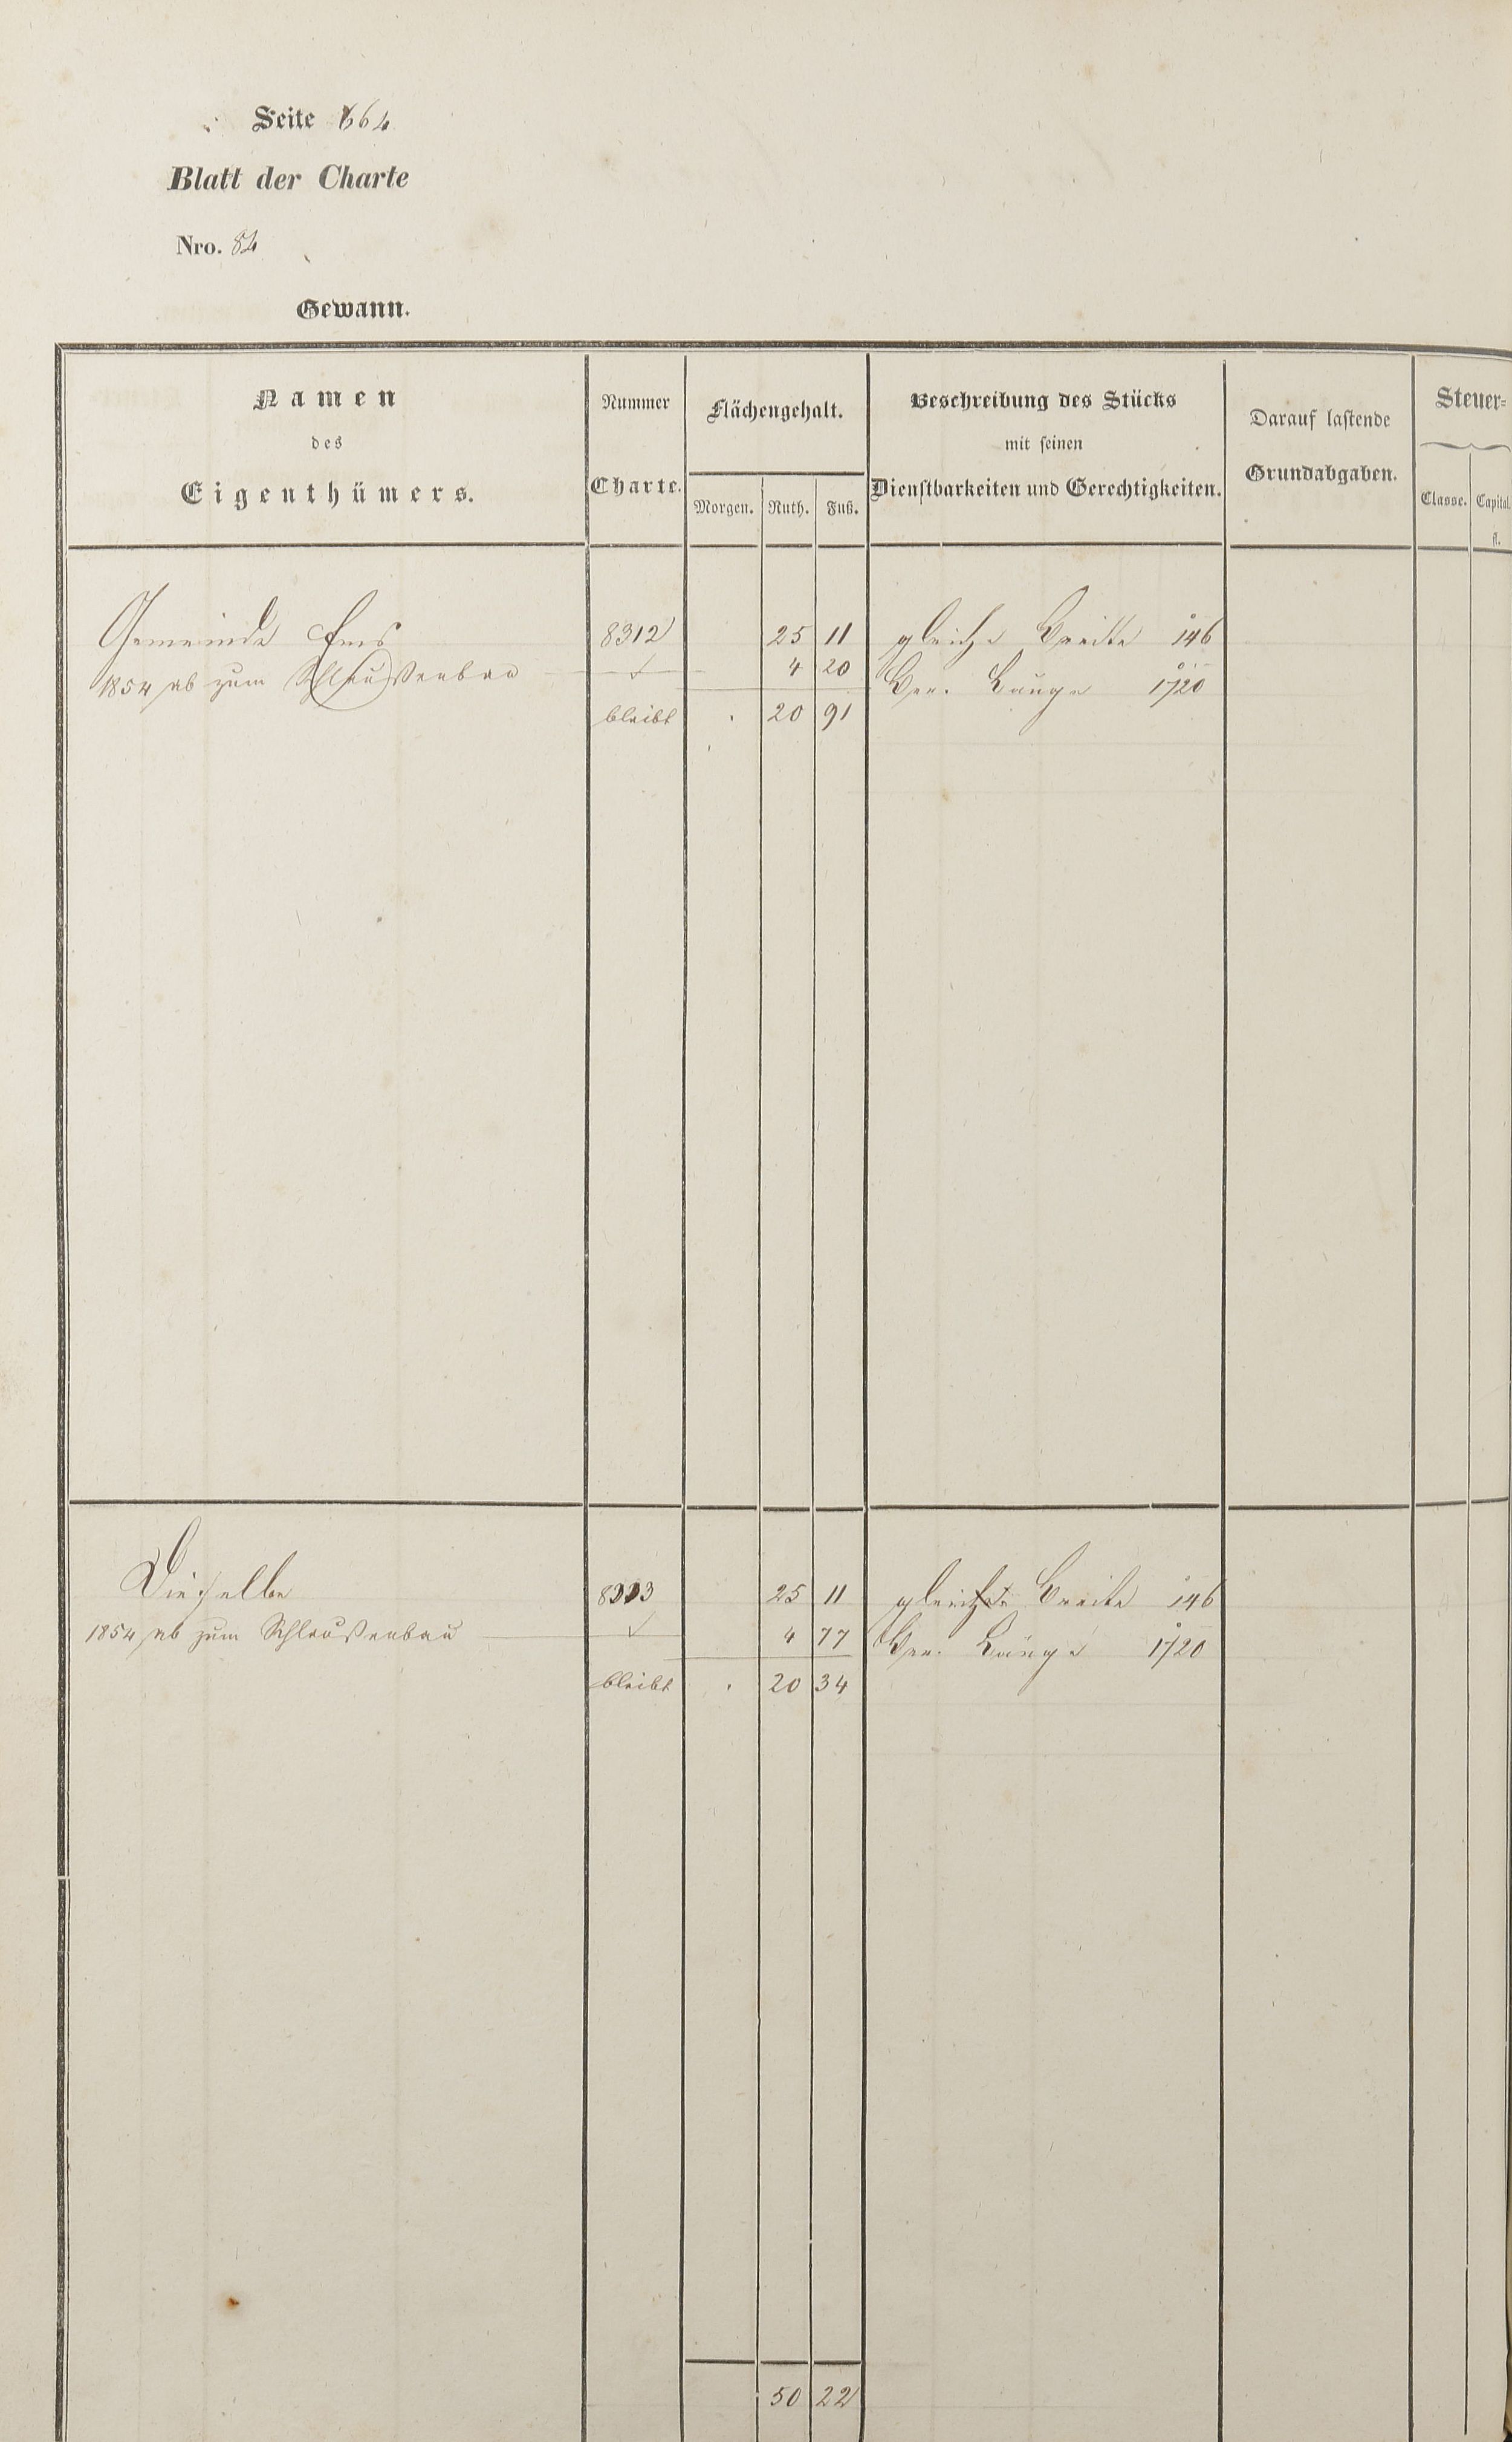 Seite 664
Blatt der Charte
Nro. 84
Gewann.
Namen
des
Eigenthümers.
Nummer
Charte.
Flächengehalt.
Morgen. Ruth. Fuß.
Beschreibung des Stücks
mit seinen
Dienstbarkeiten und Gerechtigkeiten.
Darauf lastende
Grundabgaben.
Steuer-
Classe. Capital
fl.
Gemeinde Ems 8312 25 11 gleiche Breite 146
1854 ab zum Schleußenbau 4 20 Ber. Länge 1720
bleibt . 20 91
Dieselbe 8313 25 11 gleiche Breite 146
1854 ab zum Schleußenbau 4 77 Ber. Länge 1720
bleibt . 20 34
50 22